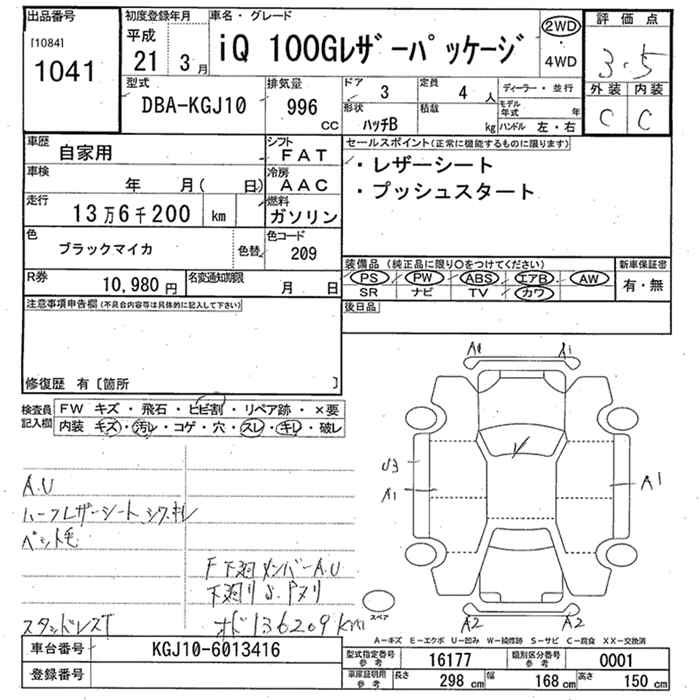 出品番号
[1084]
1041
初度登録年月
平成
21 3月
車名・グレード
iQ 100Gレザーパッケージ
2WD
・
4WD
評価点
3.5
外装 内装
C C
型式
DBA-KGJ10
排気量
996
CC
ドア
3
定員
4 人
形状
ハッチB
積載
kg
ディーラー・並行
モデル年式 年
ハンドル 左・右
車歴
自家用
シフト
FAT
車検
年 月( 日)
冷房
AAC
走行
13万6千200 km
燃料
ガソリン
色
ブラックマイカ
色替
色コード
209
R券
10,980円
名変通知期限
月 日
セールスポイント(正常に機能するものに限ります)
・レザーシート
・プッシュスタート
装備品(純正品に限り○をつけてください)
PS PW ABS エアB AW
SR ナビ TV カワ
新車保証書
有・無
後日品
注意事項申告欄(不具合内容等は具体的に記入して下さい)
修復歴 有〔箇所 〕
検査員記入欄
FW キズ・飛石・ヒビ割・リペア跡・×要
内装 キズ・汚レ・コゲ・穴・スレ・キレ・破レ
A.U
ハーフレザーシート、シワ、キレ
ペット毛
F下廻メンバーA.U
下廻りS、Pヌリ
スタッドレスT
オド136209km
A1 A1
U3
A1
A1
A2 A2
スペア
A-キズ E-エクボ U-凹み W-補修跡 S-サビ C-腐食 XX-交換済
車台番号
KGJ10-6013416
登録番号
型式指定番号 参考
16177
類別区分番号 参考
0001
車庫証明用 参考
長さ 298 cm
幅 168 cm
高さ 150 cm